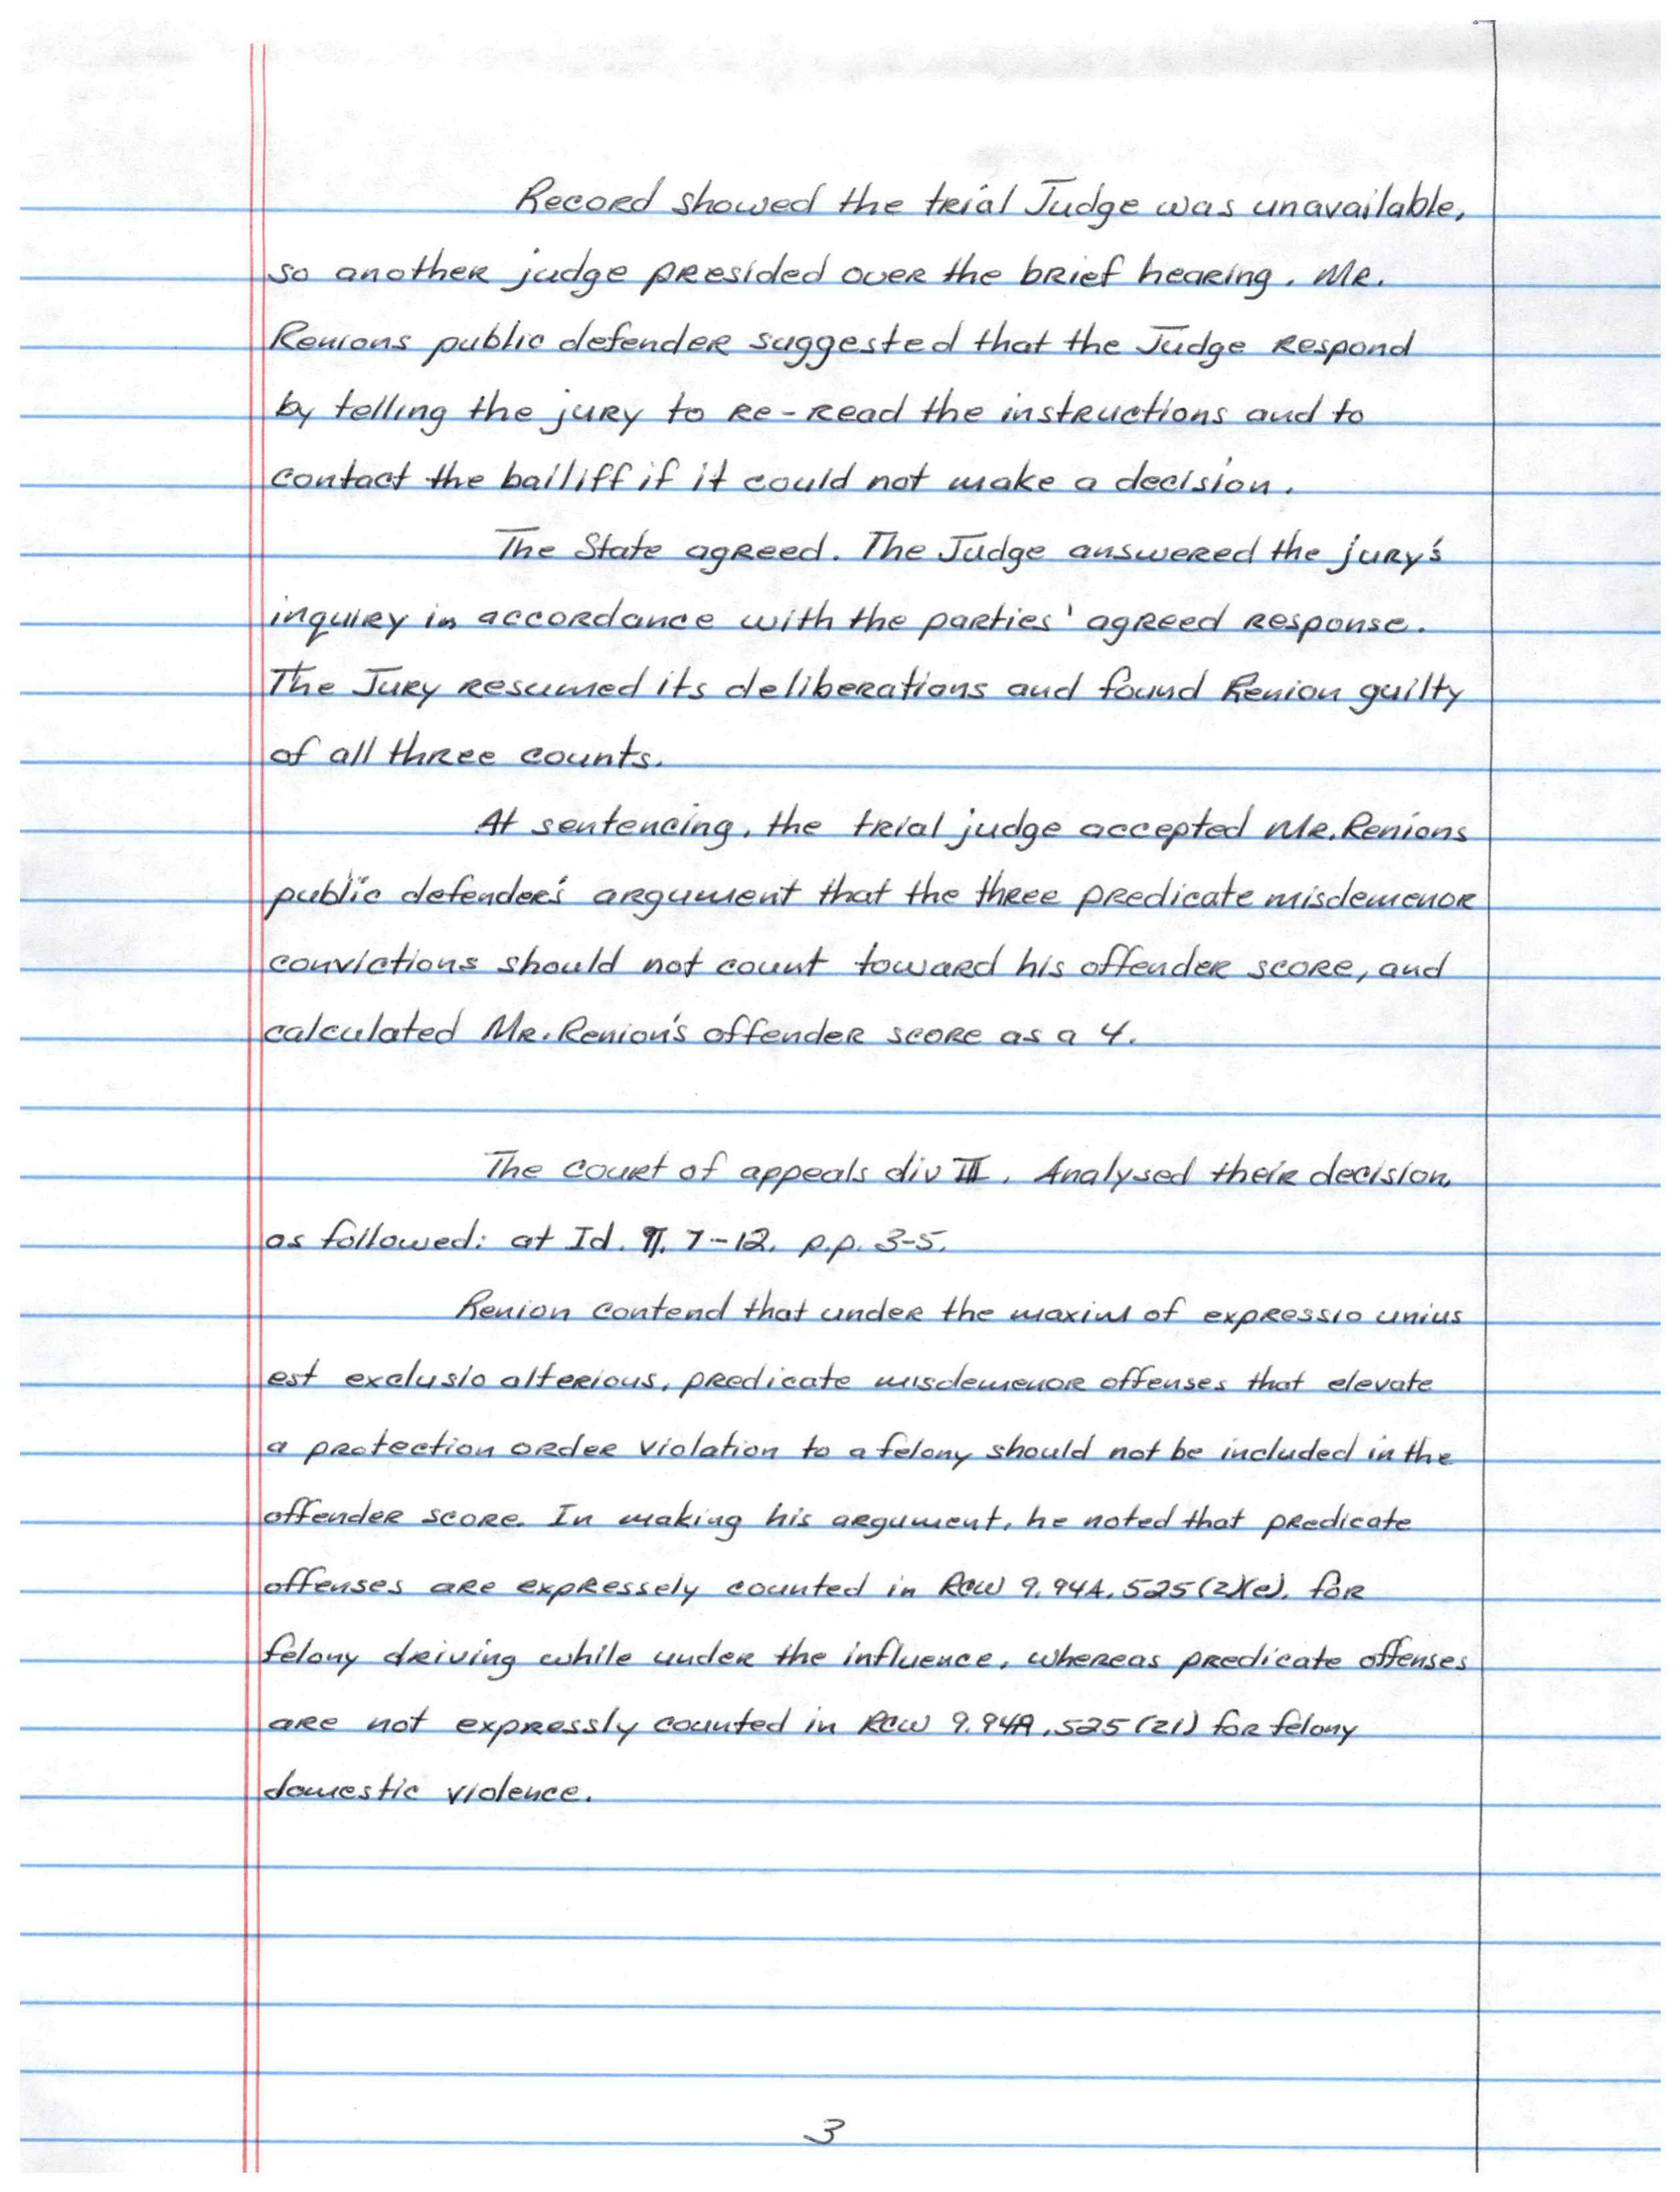 Record showed the trial Judge was unavailable,
so another judge presided over the brief hearing. Mr.
Renions public defender suggested that the Judge respond
by telling the jury to re-read the instructions and to
contact the bailiff if it could not make a decision.
The State agreed. The Judge answered the jury's
inquiry in accordance with the parties' agreed response.
The Jury resumed its deliberations and found Renion guilty
of all three counts.
At sentencing, the trial judge accepted Mr. Renions
public defender's argument that the three predicate misdemenor
convictions should not count toward his offender score, and
calculated Mr. Renion's offender score as a 4.
The court of appeals div III. Analysed their decision,
as followed: at Id. ¶. 7-12. p.p. 3-5.
Renion contend that under the maxim of expressio unius
est exclusio alterious, predicate misdemenor offenses that elevate
a protection order violation to a felony should not be included in the
offender score. In making his argument, he noted that predicate
offenses are expressely counted in RCW 9.94A.525(2)(e). for
felony driving while under the influence, whereas predicate offenses
are not expressly counted in RCW 9.94A.525(21) for felony
domestic violence.
3